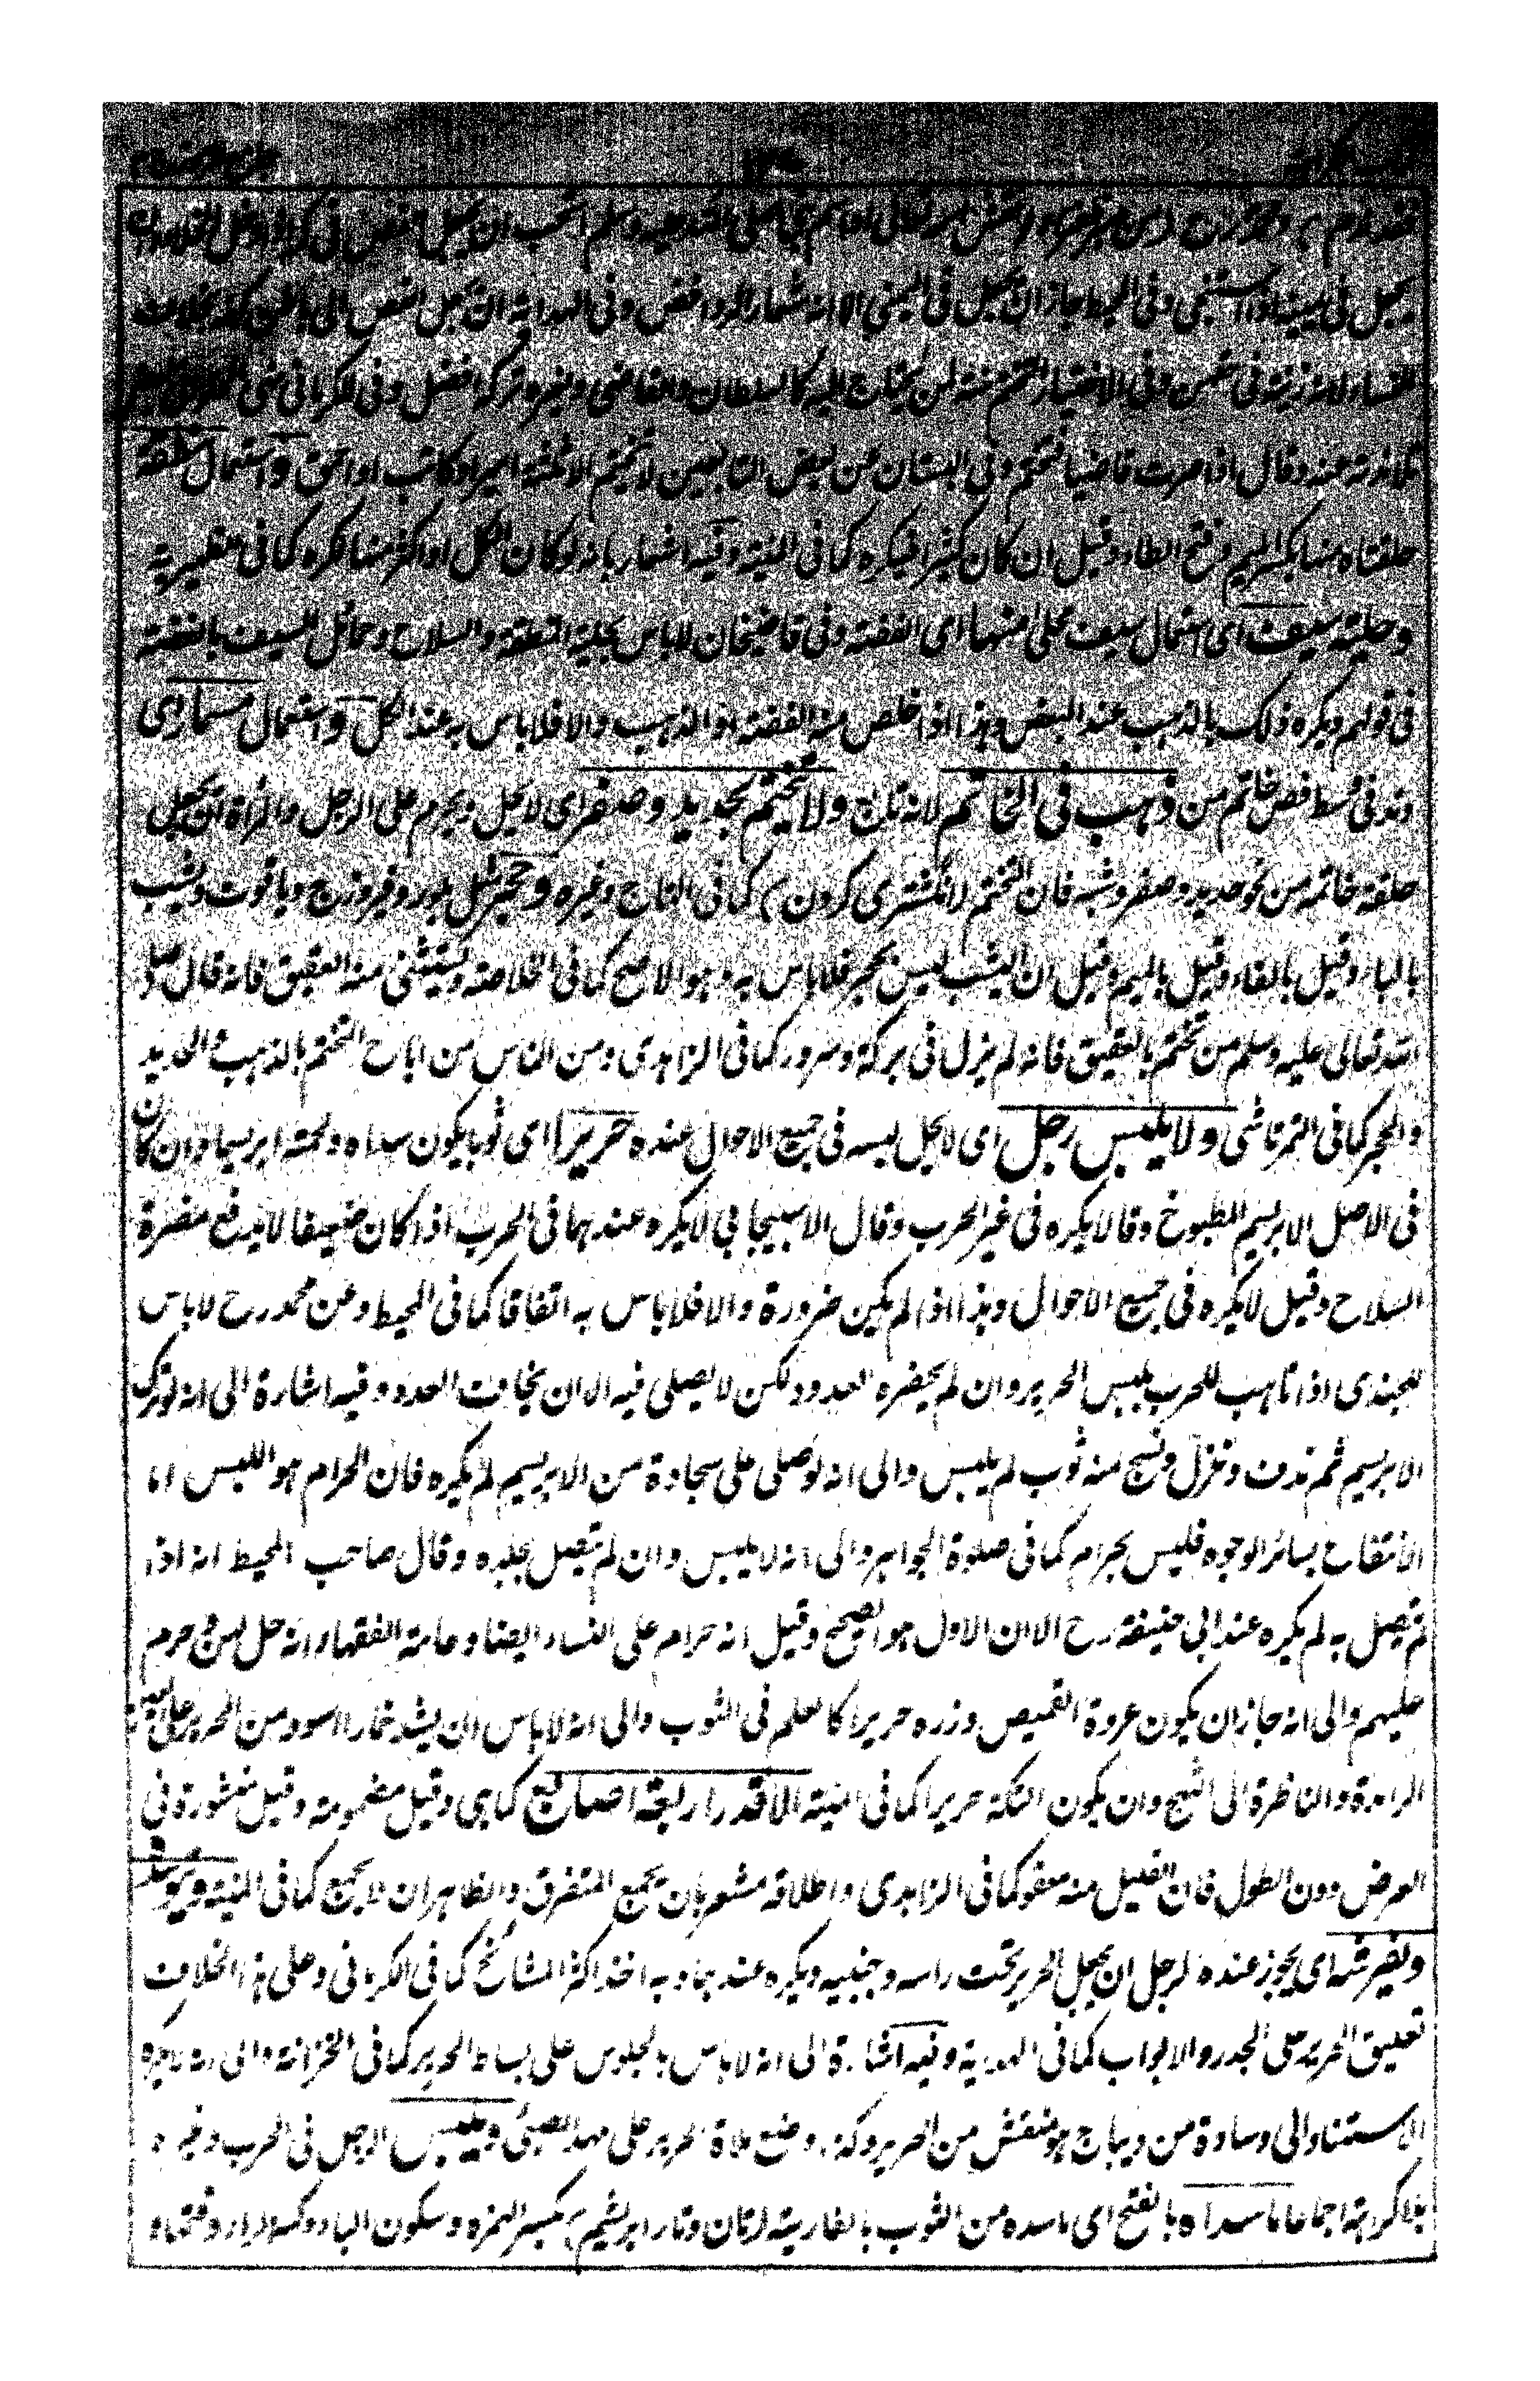 يجعل في يمينه او استنجى وفي المحيط جاز ان يجعل في اليمنى الا انه شعار الروافض وفي الهداية ان يجعل الفص الى باطن كفه بخلاف
النساء لانه زينة في حقهن وفي الاختيار التختم سنة لمن يحتاج اليه كالسلطان والقاضي وغيره تركه افضل وفي الكرماني نهى الحلواني بعض
تلامذته عنه وقال اذا صرت قاضيا فتختم وفي البستان عن بعض التابعين لا تختم الا ثلثة امير او كاتب او احمق واستعمال منطقة
حلقتاه منها بكسر الميم وفتح الطاء وقيل ان كان كثيرا فيكره كما في المنية وفيه اشعار بانه لو كان الكل او اكثر منها كره كما في ظهيرية
وحلية سيف اى استعمال سيف محلى منها اى الفضة وفي قاضيخان لا باس بحلية المنطقة والسلاح وحمائل السيف بالفضة
في قولهم ويكره ذلك بالذهب عند البعض وهذا اذا خلص منه الفضة او الذهب والا فلا باس به عند الكل واستعمال مسمار اى
وتد في وسط فص خاتم من ذهب في الخاتم لانه تابع ولا يتختم بحديد وصفر اى لا يحل ويحرم على الرجل والمرأة ان يجعل
حلقة خاتمه من نحو حديد وصفر وشبه فان التختم (انگشترى كردن) كما في التاج وغيره وحجر مثل بلور وفيروزج وياقوت ويشب
بالباء وقيل بالفاء وقيل بالميم وقيل ان اليشب ليس بحجر فلا باس به وهو الاصح كما في الخلاصة ويستثنى منه العقيق فانه قال صلى
الله تعالى عليه وسلم من تختم بالعقيق فانه لم يزل في بركة وسرور كما في الزاهدى ومن الناس من اباح التختم بالذهب والحديد
والحجر كما في التمرتاشى ولا يلبس رجل اى لا يحل لبسه في جميع الاحوال عنده حريرا اى ثوبا يكون سداه ولحمته ابريسما وان كان
في الاصل الابريسم المطبوخ وقالا يكره في غير الحرب وقال الاسبيجابي لا يكره عندهما في الحرب اذا كان ضعيفا لا يدفع مضرة
السلاح وقيل لا يكره في جميع الاحوال وهذا اذا لم يكن ضرورة والا فلا باس به اتفاقا كما في المحيط وعن محمد رح لا باس
للجندى اذا تاهب للحرب بلبس الحرير وان لم يحضره العدو ولكن لا يصلى فيه الا ان يخاف العدو وفيه اشارة الى انه لو ترك
الابريسم ثم ندف وغزل ونسج منه ثوب لم يلبس والى انه لو صلى على سجادة من الابريسم لم يكره فان الحرام هو اللبس اما
الانتفاع بسائر الوجوه فليس بحرام كما في صلوة الجواهر والى انه لا يلبس وان لم يتصل بجلده وقال صاحب المحيط انه اذا
لم يتصل به لم يكره عند ابي حنيفة رح الا ان الاول هو الصحيح وقيل انه حرام على النساء ايضا وعامة الفقهاء انه حل لهن وحرم
عليهم والى انه جاز ان يكون عروة القميص وزره حريرا كالعلم في الثوب والى انه لا باس ان يشد خمارا اسود من الحرير على العين
الرامدة والناظرة الى الثلج وان يكون التكة حريرا كما في المنية الا قدر اربعة اصابع كما هى وقيل مضمومة وقيل منشورة في
العرض دون الطول فان القليل منه معفو كما في الزاهدى واطلاقه مشعر بان يجمع المتفرق والظاهر ان لا يجمع كما في المنية ويتوسده
ويفترشه اى يجوز عنده لرجل ان يجعل الحرير تحت راسه وجنبيه ويكره عندهما وبه اخذ اكثر المشائخ كما في الكرماني وعلى هذا الخلاف
تعليق الحرير على الجدر والابواب كما في الهداية وفيه اشارة الى انه لا باس بالجلوس على بساط الحرير كما في الخزانة والى انه لا يكره
الاستناد الى وسادة من ديباج هو منقش من الحرير وكذا وضع ملاة الحرير على مهد الصبى ويلبس الرجل في الحرب وغيره
بلا كراهة اجماعا ما سداه بالفتح اى ما سده من الثوب بالفارسية (تان وتار ابريشم) بكسر الهمزة وسكون الباء وكسر الراء وفتحها و